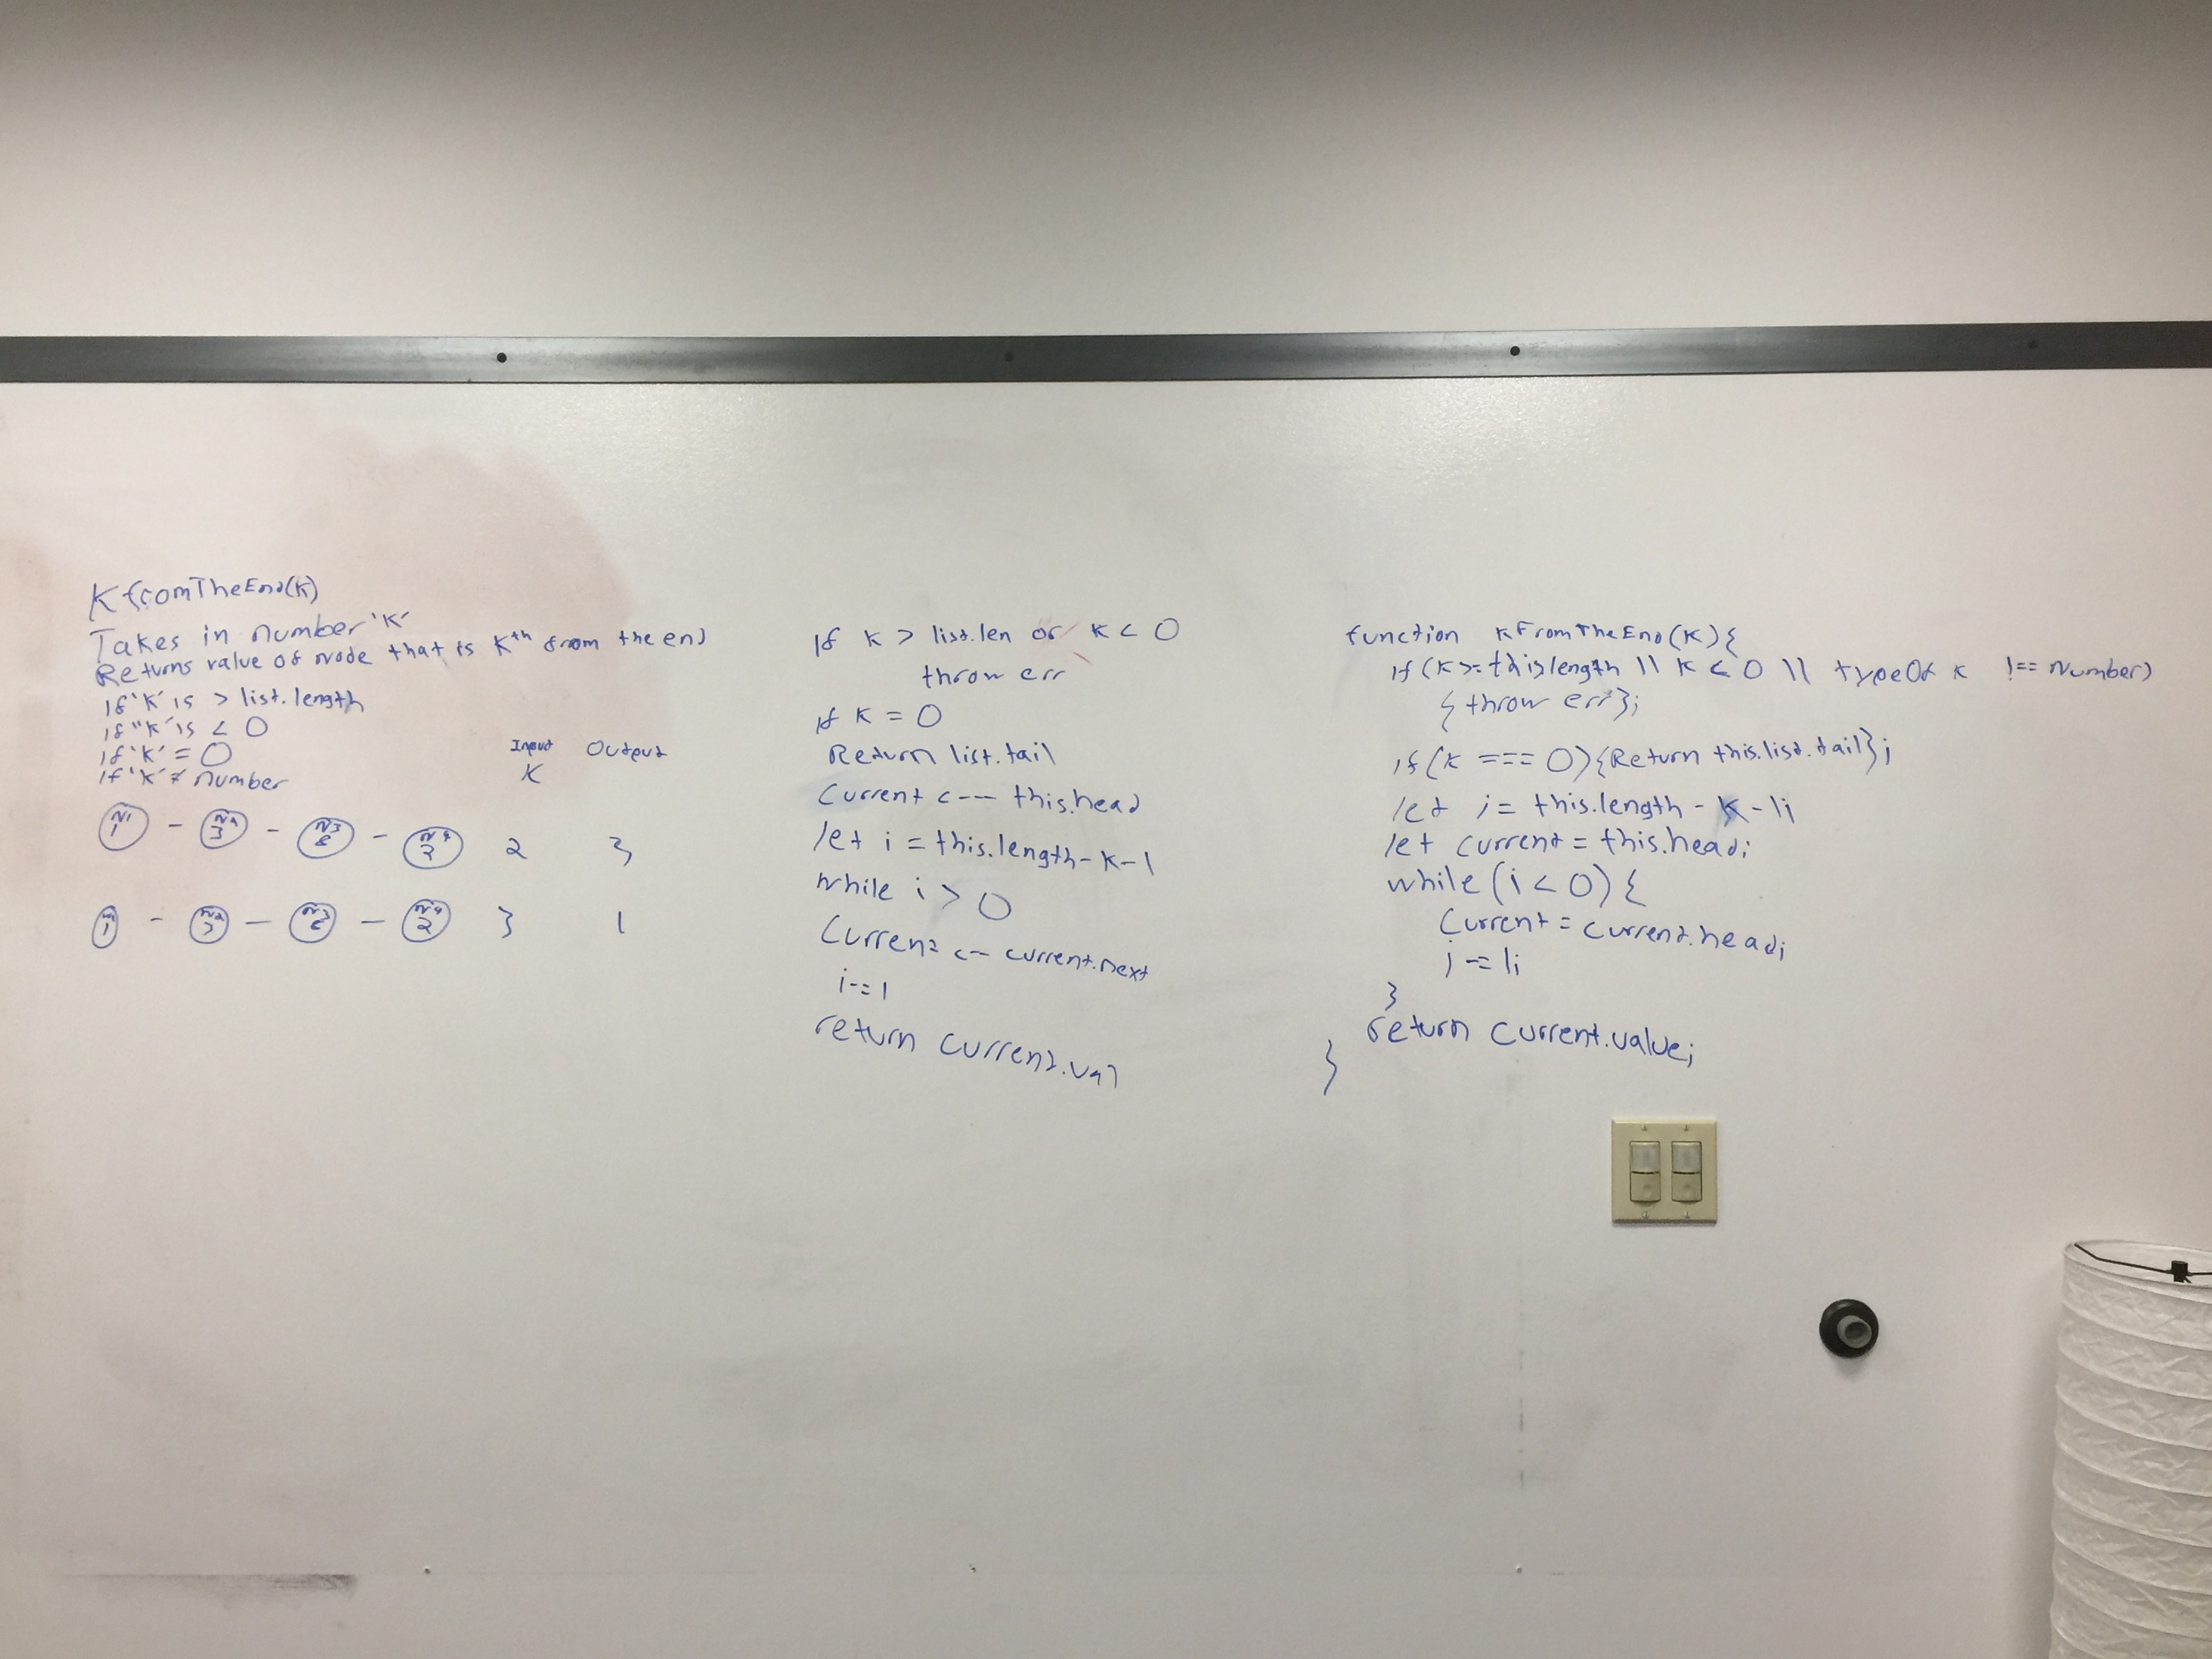 KfromTheEnd(K)
Takes in number 'K'
Returns value of node that is Kth from the end
If 'K' is > list.length
if "K' is < 0
if 'K' = 0
If 'K' ≠ number
Input Output
K
N1 1 - 3 - N3 8 - N4 2 2 3
1 - N2 3 - N3 8 - N4 2 3 1
If K > list.len or K < 0
throw err
if K = 0
Return list.tail
Current <-- this.head
let i = this.length-K-1
While i > 0
Current <- current.next
i-=1
return current.val
function KFromTheEnd(K){
if (K >= this.length || K < 0 || typeOf K !== Number)
{throw err};
if (K === 0){Return this.list.tail};
let i = this.length - K - 1;
let current = this.head;
while (i < 0) {
Current = current.head;
i -= 1;
}
return current.value;
}